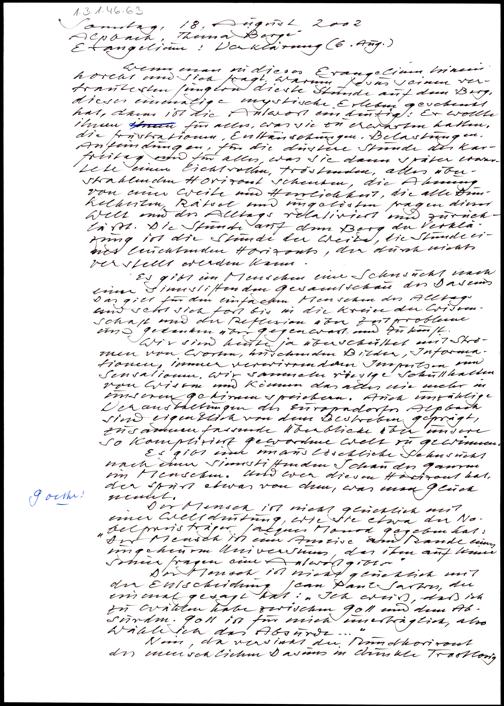 13146.63
Sonntag, 18. August 2002
Alpbach, Thema Berge
Evangelium: Verklärung (6. Aug.)
Wenn man in dieses Evangelium hinein
horcht und sich fragt, warum Jesus seinen ver-
trautesten Jüngern diese Stunde auf dem Berg,
dieses einmalige mystische Erleben geschenkt
hat, dann ist die Antwort eindeutig: Er wollte
ihnen für alles, was sie zu erwarten hatten,
die Frustrationen, Enttäuschungen, Belastungen,
Anfeindungen, für die düstere Stunde des Kar-
freitag und für alles, was sie dann später erwar-
tete einen lichtvollen, tröstenden, alles über-
strahlenden Horizont schenken, die Ahnung
von einer Weite und Herrlichkeit, die alle Dun-
kelheiten, Rätsel und ungelösten Fragen dieser
Welt und des Alltags relativiert und zurück-
läßt. Die Stunde auf dem Berg der Verklä-
rung ist die Stunde der Weite, die Stunde ei-
nes leuchtenden Horizonts, der durch nichts
verstellt werden kann.
Es gibt im Menschen eine Sehnsucht nach
einer sinnstiftenden Gesamtschau des Daseins
Das gilt für den einfachen Menschen des Alltags
und setzt sich fort bis in die Kreise der Wissen-
schaft und der Reflexion über Zeitprobleme
und Gedanken über Gegenwart und Zukunft.
Wir sind heute ja überschüttet mit Strö-
men von Worten, huschenden Bildern, Informa-
tionen, immer verwirrenderen Impulsen und
Sensationen. Wir sammeln riesige Schutthalden
von Wissen und können das alles nie mehr in
unseren Gehirnen speichern. Auch unzählige
Veranstaltungen des Europadorfes Alpbach
sind eigentlich von dem Bestreben geprägt,
zusammenfassende Überblicke über unsere
so kompliziert gewordene Welt zu gewinnen.
Es gibt eine unauslöschliche Sehnsucht
nach einer sinnstiftenden Schau des Ganzen
im Menschen. Und wer diesen Horizont hat,
der spürt etwas von dem, was man Glück
nennt.
Goethe!
Der Mensch ist nicht glücklich mit
einer Weltdeutung, wie sie etwa der No-
belpreisträger Jacques Monod gegeben hat:
"Der Mensch ist eine Ameise am Rande eines
ungeheuren Universums, das ihm auf keine
seiner Fragen eine Antwort gibt."
Der Mensch ist nicht glücklich mit
der Entscheidung Jean Paul Sartres, der
einmal gesagt hat: "Ich weiß, daß ich
zu wählen habe zwischen Gott und dem Ab-
surden. Gott ist für mich unerträglich, also
wähle ich das Absurde..."
Nein, da versinkt der Rundhorizont
des menschlichen Daseins in dunkle Trostlosig